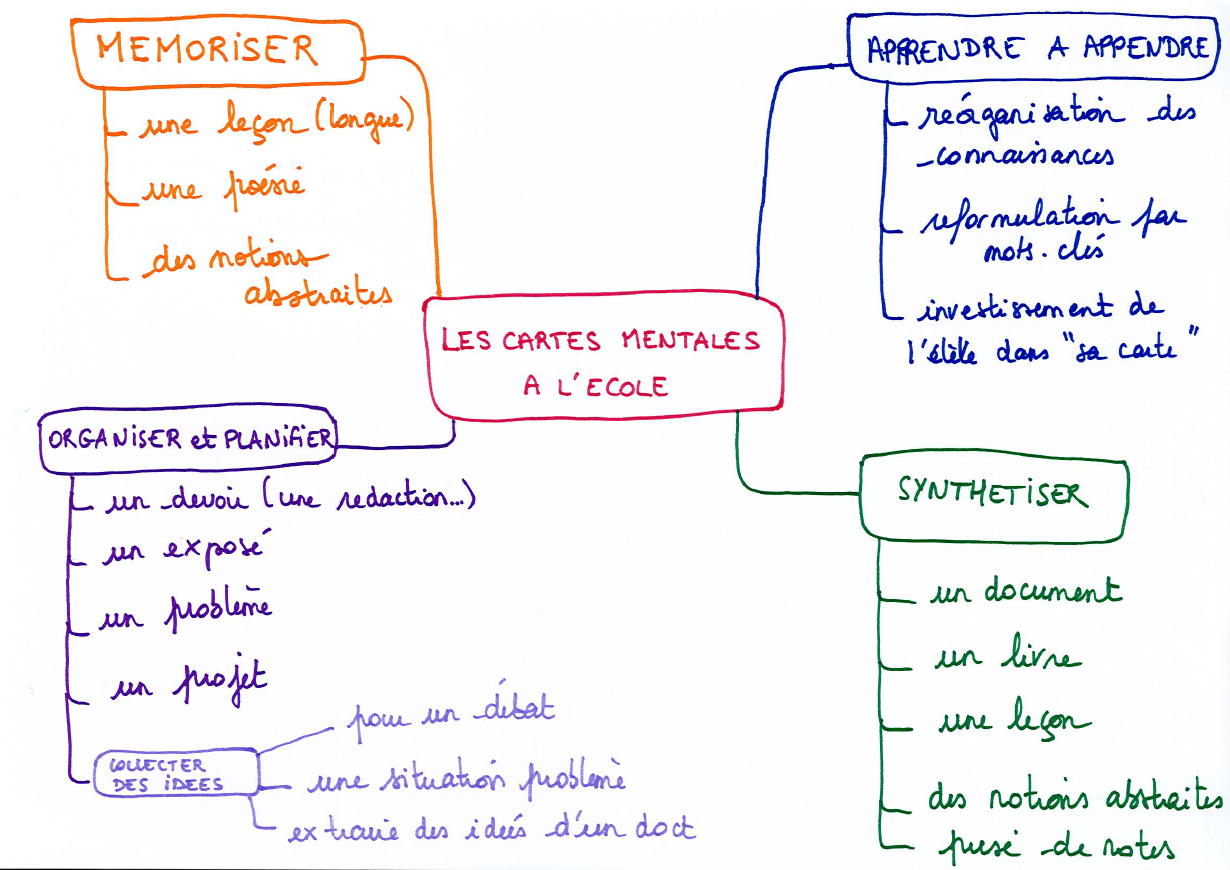 MEMORISER
une leçon (longue)
une poésie
des notions
abstraites
APPRENDRE A APPENDRE
reórganisation des
connaissances
reformulation par
mots-clés
investissement de
l'élève dans "sa carte"
LES CARTES MENTALES
A L'ECOLE
ORGANISER et PLANIFIER
un devoir (une redaction...)
un exposé
un problème
un projet
COLLECTER
DES IDEES
pour un débat
une situation problème
extraire des idées d'un doct
SYNTHETISER
un document
un livre
une leçon
des notions abstraites
prise de notes